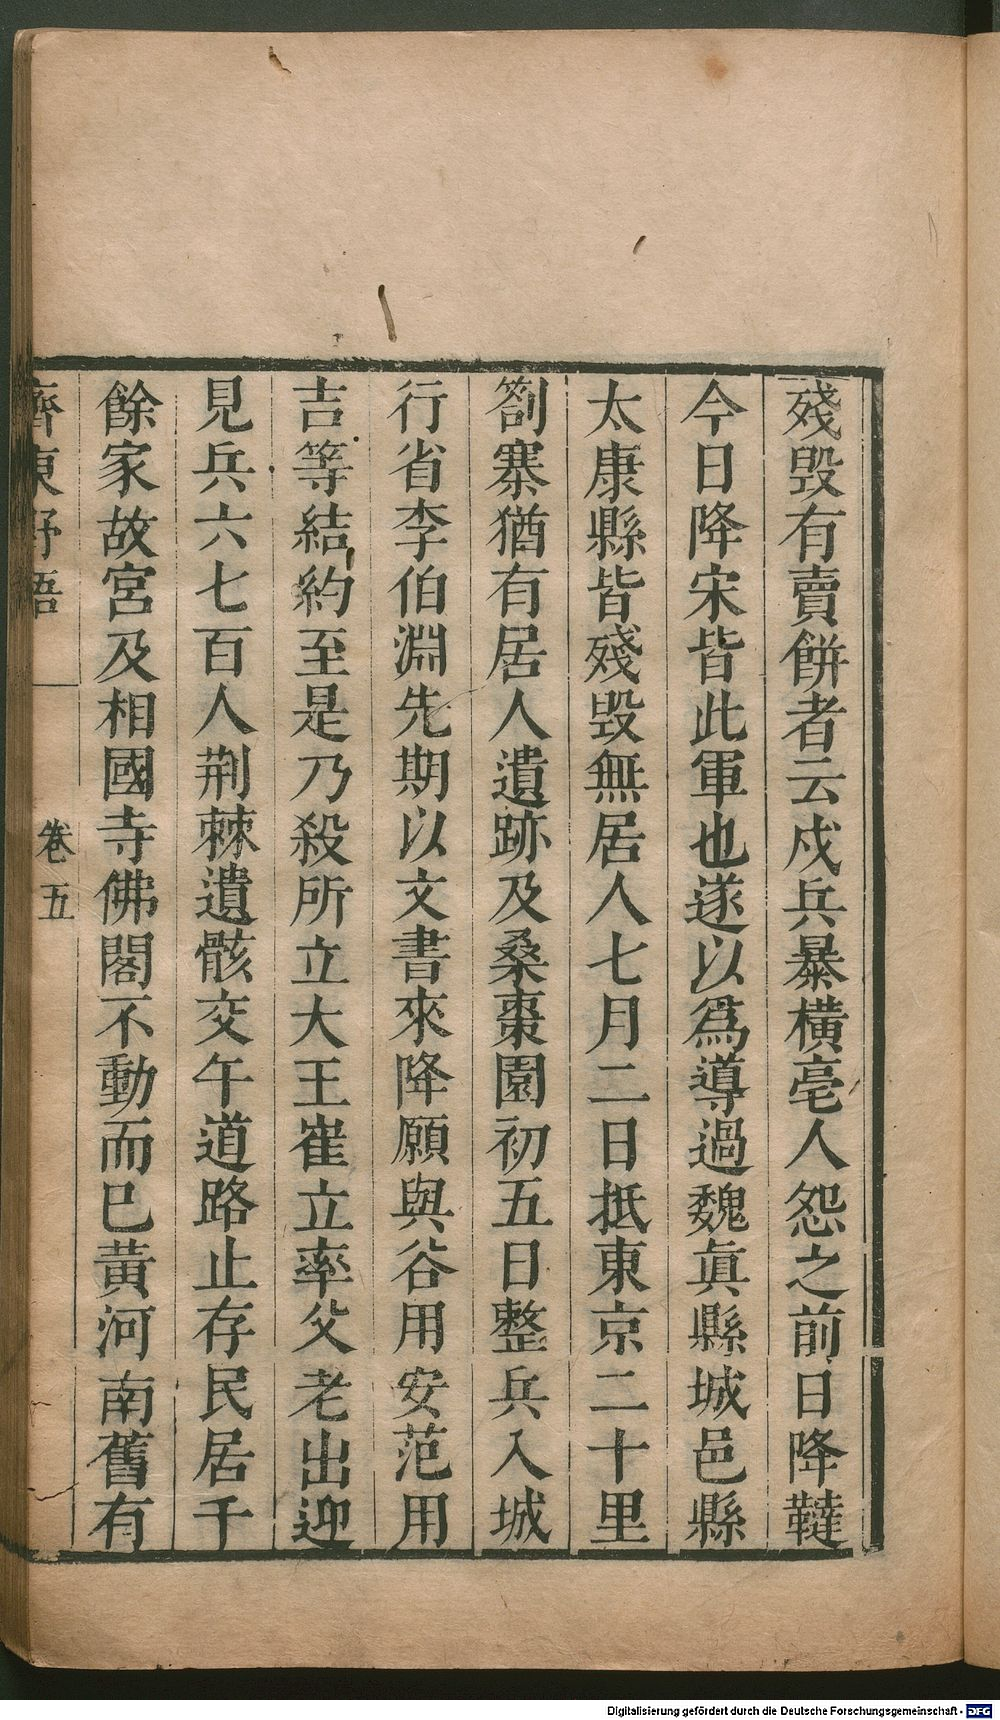 殘毀有賣餅者云戍兵暴橫亳人怨之前日降韃
今日降宋皆此軍也遂以爲導過魏眞縣城邑縣
太康縣皆殘毀無居人七月二日抵東京二十里
劄寨猶有居人遺跡及桑棗園初五日整兵入城
行省李伯淵先期以文書來降願與谷用安范用
吉等結約至是乃殺所立大王崔立率父老出迎
見兵六七百人荆棘遺骸交午道路止存民居千
餘家故宮及相國寺佛閣不動而巳黃河南舊有
齊東野語 卷五
Digitalisierung gefördert durch die Deutsche Forschungsgemeinschaft - DFG